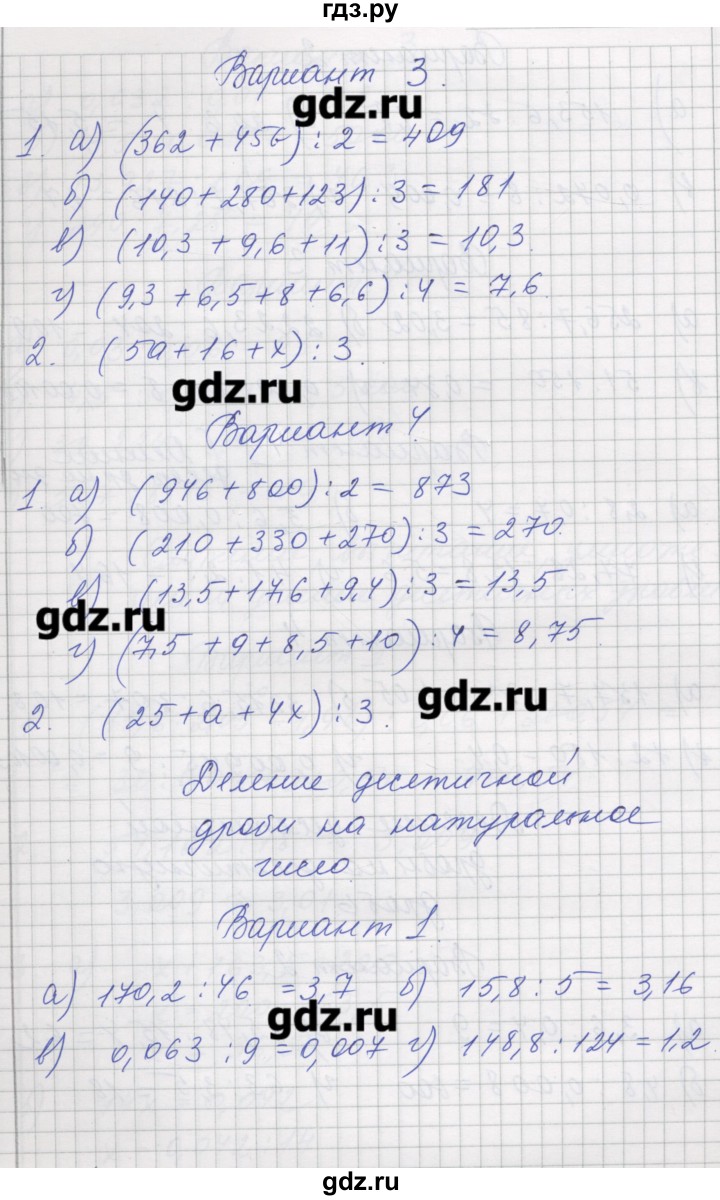 гдз.ру
Вариант 3.
gdz.ru
1. а) (362 + 456) : 2 = 409
б) (140 + 280 + 123) : 3 = 181
в) (10,3 + 9,6 + 11) : 3 = 10,3.
г) (9,3 + 6,5 + 8 + 6,6) : 4 = 7,6.
2. (5a + 16 + x) : 3.
gdz.ru
Вариант 4.
1. а) (946 + 800) : 2 = 873
б) (210 + 330 + 270) : 3 = 270.
в) (13,5 + 17,6 + 9,4) : 3 = 13,5.
gdz.ru
г) (7,5 + 9 + 8,5 + 10) : 4 = 8,75.
gdz.ru
2. (25 + a + 4x) : 3.
Деление десятичной
дроби на натуральное
число.
Вариант 1.
а) 170,2 : 46 = 3,7 б) 15,8 : 5 = 3,16
gdz.ru
в) 0,063 : 9 = 0,007 г) 148,8 : 124 = 1,2.
gdz.ru